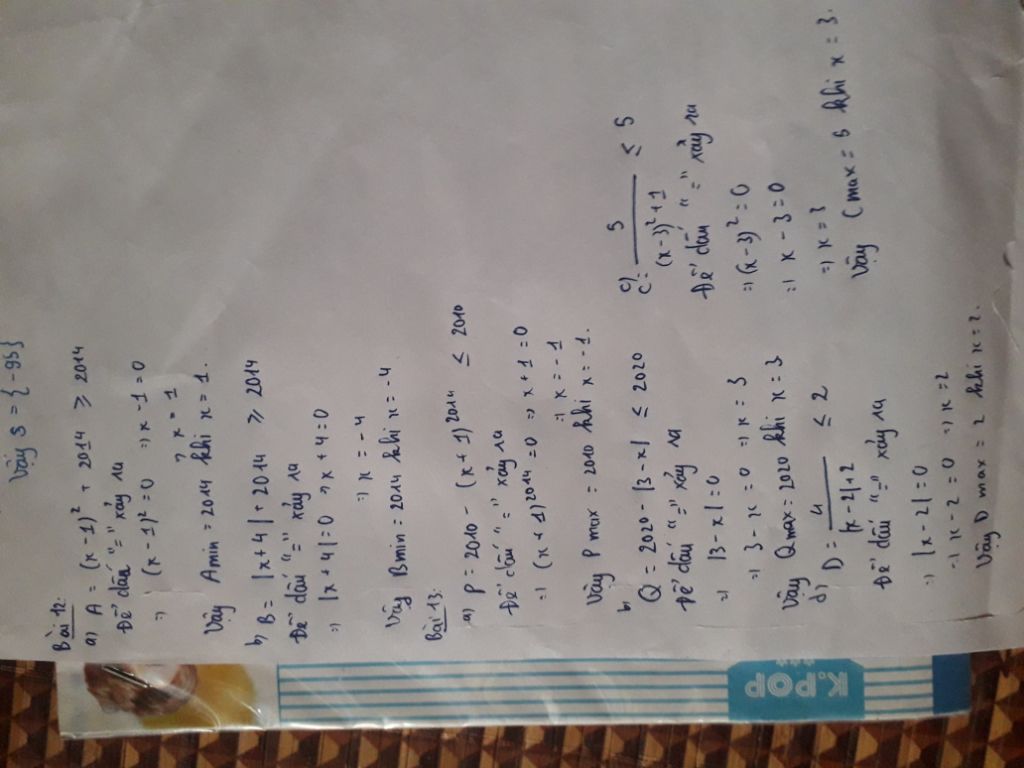 Vậy S = {-95}
Bài 12:
a) A = (x-1)² + 2014 ≥ 2014
Để dấu "=" xảy ra
=> (x-1)² = 0 => x-1 = 0
=> x = 1
Vậy Amin = 2014 khi x = 1.
b) B = |x+4| + 2014 ≥ 2014
Để dấu "=" xảy ra
=> |x+4| = 0 => x+4 = 0
=> x = -4
Vậy Bmin = 2014 khi x = -4
Bài 13:
a) P = 2010 - (x+1)²⁰¹⁴ ≤ 2010
Để dấu "=" xảy ra
=> (x+1)²⁰¹⁴ = 0 => x+1 = 0
=> x = -1
Vậy Pmax = 2010 khi x = -1.
b)
Q = 2020 - |3-x| ≤ 2020
Để dấu "=" xảy ra
=> |3-x| = 0
=> 3-x = 0 => x = 3
Vậy Qmax = 2020 khi x = 3
c)
C = 5/((x-3)²+1) ≤ 5
Để dấu "=" xảy ra
=> (x-3)² = 0
=> x-3 = 0
=> x = 3
Vậy Cmax = 5 khi x = 3.
d) D = 4/(|x-2|+2) ≤ 2
Để dấu "=" xảy ra
=> |x-2| = 0
=> x-2 = 0 => x = 2
Vậy Dmax = 2 khi x = 2.
K.POP